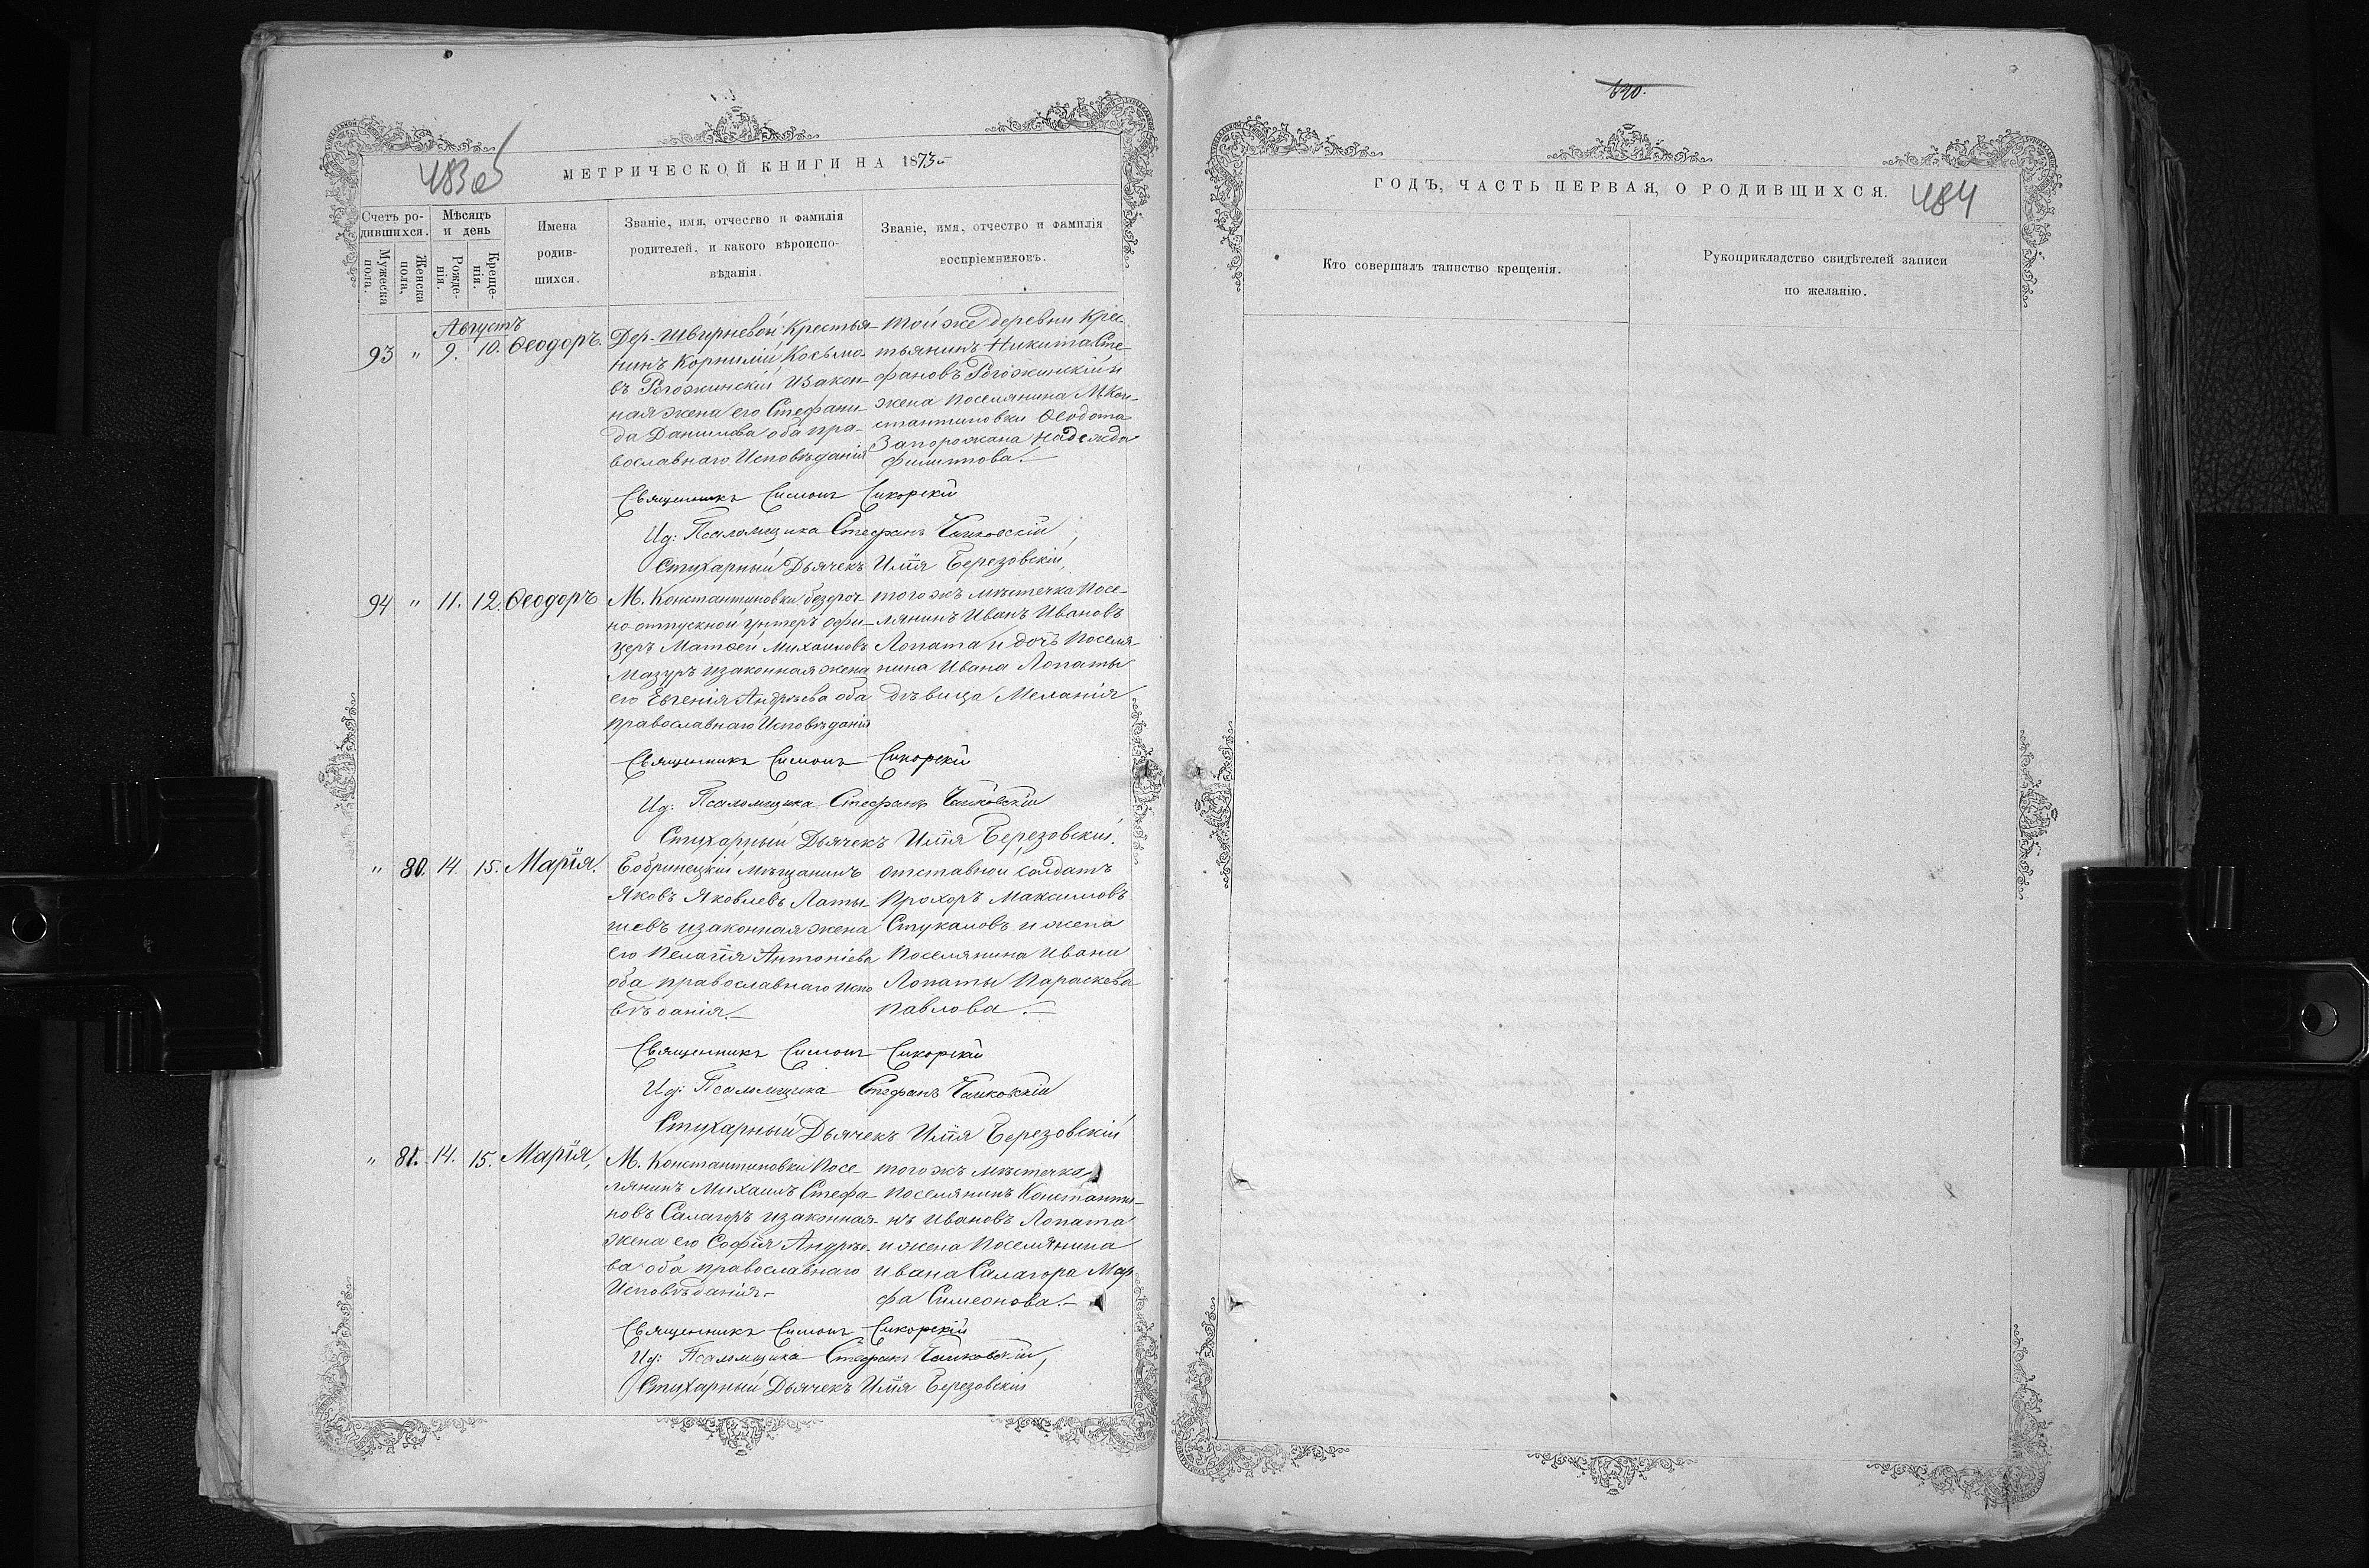 483об
МЕТРИЧЕСКОЙ КНИГИ НА 1873
Счетъ ро-
дившихся.
Мужеска
пола.
Женска
пола.
Мѣсяцъ
и день
Рожде-
нія.
Креще-
нія.
Имена
родив-
шихся.
Званіе, имя, отчество и фамилія
родителей, и какого вѣроиспо-
вѣданія.
Званіе, имя, отчество и фамилія
воспріемниковъ.
Августъ
93 " 9. 10. Ѳеодоръ.
Дер. Швырневой Крестья-
нинъ Корнилій Косьмо-
въ Рогожинскій изакон-
ная жена его Стефани-
да Данилова оба пра-
вославнаго Исповѣданія
Той же деревни Крес-
тьянинъ Никита Сте
фановъ Рогожинскій и
жена поселянина М. Кон-
стантиновки Ѳеодота
Запорожана Надежда
Филиппова.
Священникъ Симонъ Сикорскій
Ид: Псаломщика Стефанъ Чайковскій
Стихарный Дьячекъ Илія Березовскій,
94 " 11. 12. Ѳеодоръ
М. Константиновки безсроч-
но отпускной унтеръ офи-
церъ Матѳей Михаиловъ
Мазуръ изаконная жена
его Евгенія Андрѣева оба
православнаго Исповѣданія
того жъ мѣстечка Посе-
лянинъ Иванъ Ивановъ
Лопата и дочь Поселя-
нина Ивана Лопаты
дѣвица Меланія
Священникъ Симонъ Сикорскій
Ид: Псаломщика Стефанъ Чайковскій
Стихарный Дьячекъ Илія Березовскій.
" 80. 14. 15. Марія.
Бобринецкій мѣщанинъ
Яковъ Яковлевъ Латы-
шевъ изаконная жена
его Пелагія Антоніева
оба православнаго испо
вѣданія.
отставной солдатъ
Прохоръ Максимовъ
Стукаловъ и жена
Поселянина Ивана
Лопаты Параскева
Павлова.
Священникъ Симонъ Сикорскій
Ид: Псаломщика Стефанъ Чайковскій
Стихарный Дьячекъ Илія Березовскій
" 81. 14. 15. Марія,
М. Константиновки Посе-
лянинъ Михаилъ Стефа-
новъ Салагоръ изаконная
жена его Софія Андрѣе-
ва оба православнаго
Исповѣданія.
того жъ мѣстечка
поселянинъ Константи-
нъ Ивановъ Лопата
и жена Поселянина
Ивана Салагора Мар
фа Симеонова.
Священникъ Симонъ Сикорскій
Ид: Псаломщика Стефанъ Чайковскій,
Стихарный Дьячекъ Илія Березовскій
ГОДЪ, ЧАСТЬ ПЕРВАЯ, О РОДИВШИХСЯ.
484
Кто совершалъ таинство крещенія.
Рукоприкладство свидѣтелей записи
по желанію.